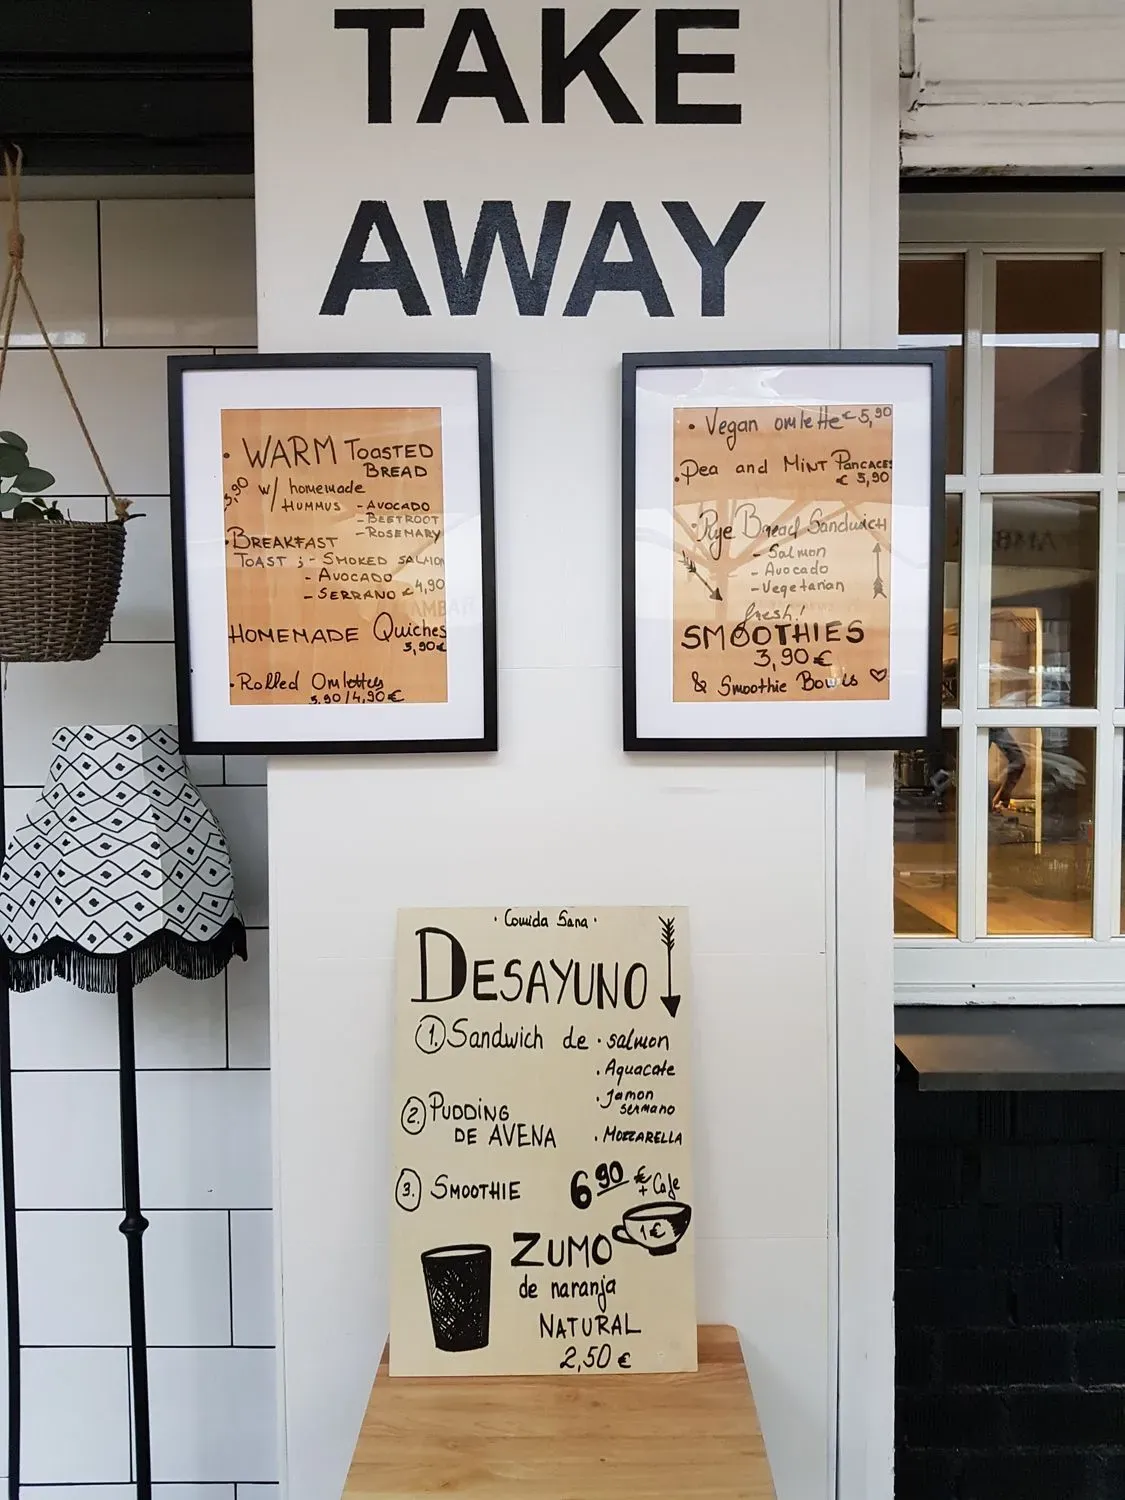 TAKE
AWAY
· WARM TOASTED
BREAD
3,90 w/ homemade
HUMMUS - AVOCADO
- BEETROOT
- ROSEMARY
· BREAKFAST
TOAST ; - SMOKED SALMON
- AVOCADO
- SERRANO € 4,90
HOMEMADE Quiches
3,90€
· Rolled Omlettes
3.90/4,90€
· Vegan omlette € 5,90
· Pea and MiNT PANCACES
€ 5,90
· Rye Bread Sandwich
- Salmon
- Avocado
- Vegetarian
fresh!
SMOOTHIES
3,90€
& Smoothie Bowls
· Comida Sana ·
DESAYUNO
1. Sandwich de · salmon
· Aquacate
· Jamon
serrano
2. PUDDING
DE AVENA · MOZZARELLA
3. SMOOTHIE 6 90 € + Cafe
1€
ZUMO
de naranja
NATURAL
2,50 €